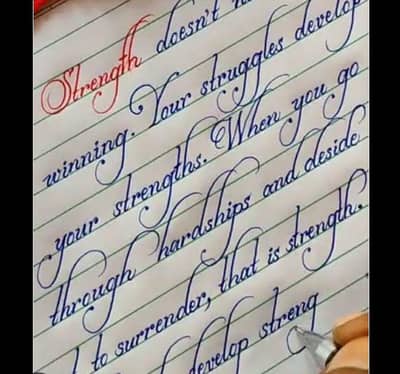 Strength doesn't
winning. Your struggles develop
your strengths. When you go
through hardships and deside
to surrender, that is strength.
develop streng